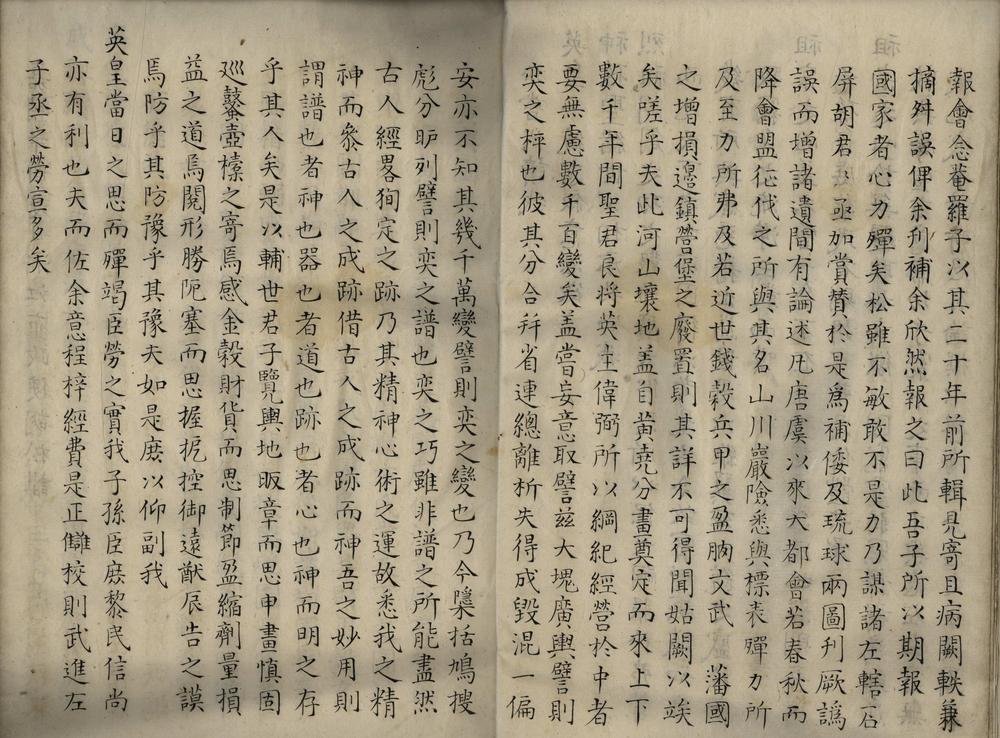 報會念菴羅子以其二十年前所輯見寄且病闕軼兼
摘舛誤俾余刋補余欣然報之曰此吾子所以期報
國家者心力殫矣松雖不敏敢不是力乃謀諸左轄石
屏胡君君亟加賞賛於是為補倭及琉球兩圖刋厥譌
誤而增諸遺間有論述凡唐虞以來大都會若春秋而
降會盟征代之所與其名山川巖險悉與標表殫力所
及至力所弗及若近世錢穀兵甲之盈朒文武藩國
之增損邉鎮營堡之廢置則其詳不可得聞姑闕以竢
矣嗟乎夫此河山壤地盖自黃堯分畫奠定而來上下
數千年間聖君良將英主偉弼所以綱紀經營於中者
要無慮數千百變矣盖嘗妄意取譬兹大塊廣輿譬則
奕之枰也彼其分合并省連總離析失得成毀混一偏
安亦不知其幾千萬變譬則奕之變也乃今檃括鳩搜
彪分昈列譬則奕之譜也奕之巧雖非譜之所能盡然
古人經畧狥定之跡乃其精神心術之運故悉我之精
神而叅古人之成跡借古人之成跡而神吾之妙用則
謂譜也者神也器也者道也跡也者心也神而明之存
乎其人矣是以輔世君子覽輿地昄章而思申畫慎固
廵鼇壺榛之寄焉感金穀財貨而思制節盈縮劑量損
益之道焉閱形勝阨塞而思握扼控御遠猷辰告之謨
焉防乎其防豫乎其豫夫如是庶以仰副我
英皇當日之思而殫竭臣勞之實我子孫臣庶黎民信尚
亦有利也夫而佐余意程梓經費是正讎校則武進左
子丞之勞宣多矣